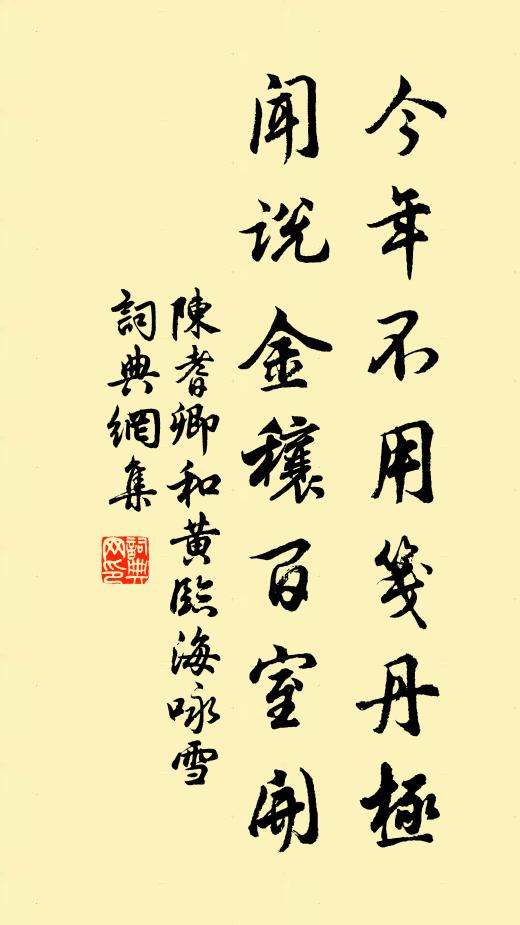 今年不用箋丹極
聞說金穰百室開
陳耆卿和黃臨海咏雪
詞典網集
詞典
网印